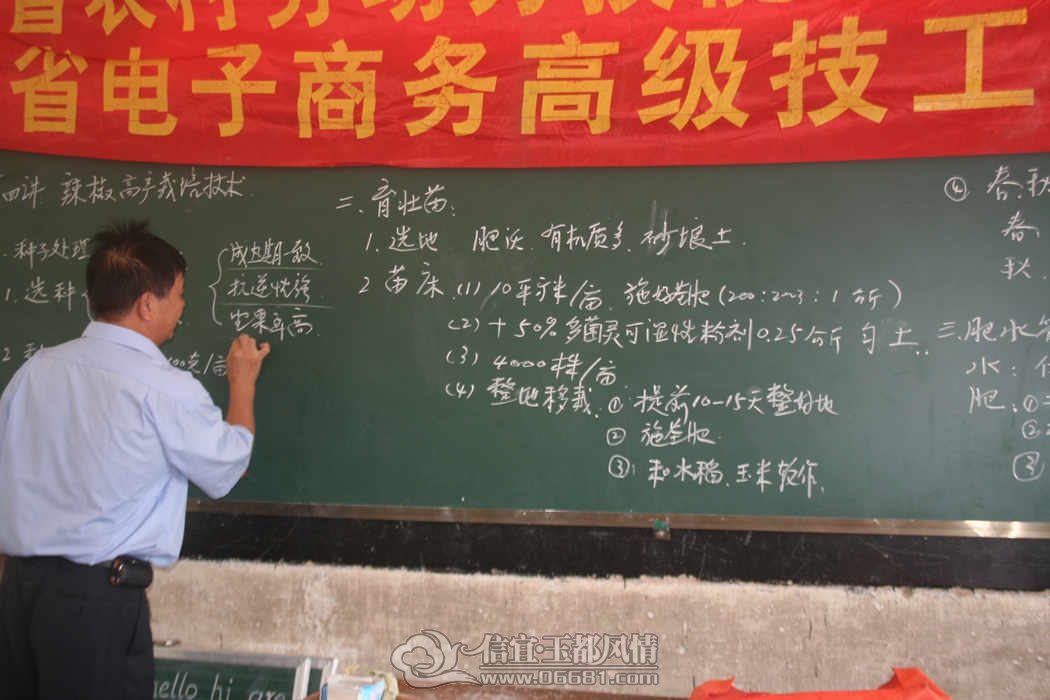 省农村劳动力技能
省电子商务高级技工
四讲 辣椒高产栽培技术
种子处理
1. 选种
成熟期一致
抗逆性强
坐果率高
2
00克/亩
二. 育壮苗:
1. 选地 肥沃. 有机质多. 砂壤土.
2 苗床. (1) 10平方米/亩.
(2) + 50% 多菌灵可湿性粉剂 0.25公斤 匀土..
(3) 4000株/亩
(4) 整地移栽. ① 提前10-15天整好地
② 施基肥.
③: 和水稻、玉米轮作.
④. 春.秋
春.
秋.
三.肥水管
水:
肥: ①
②
③
hello hi are
信宜·玉都风情
www.06681.com